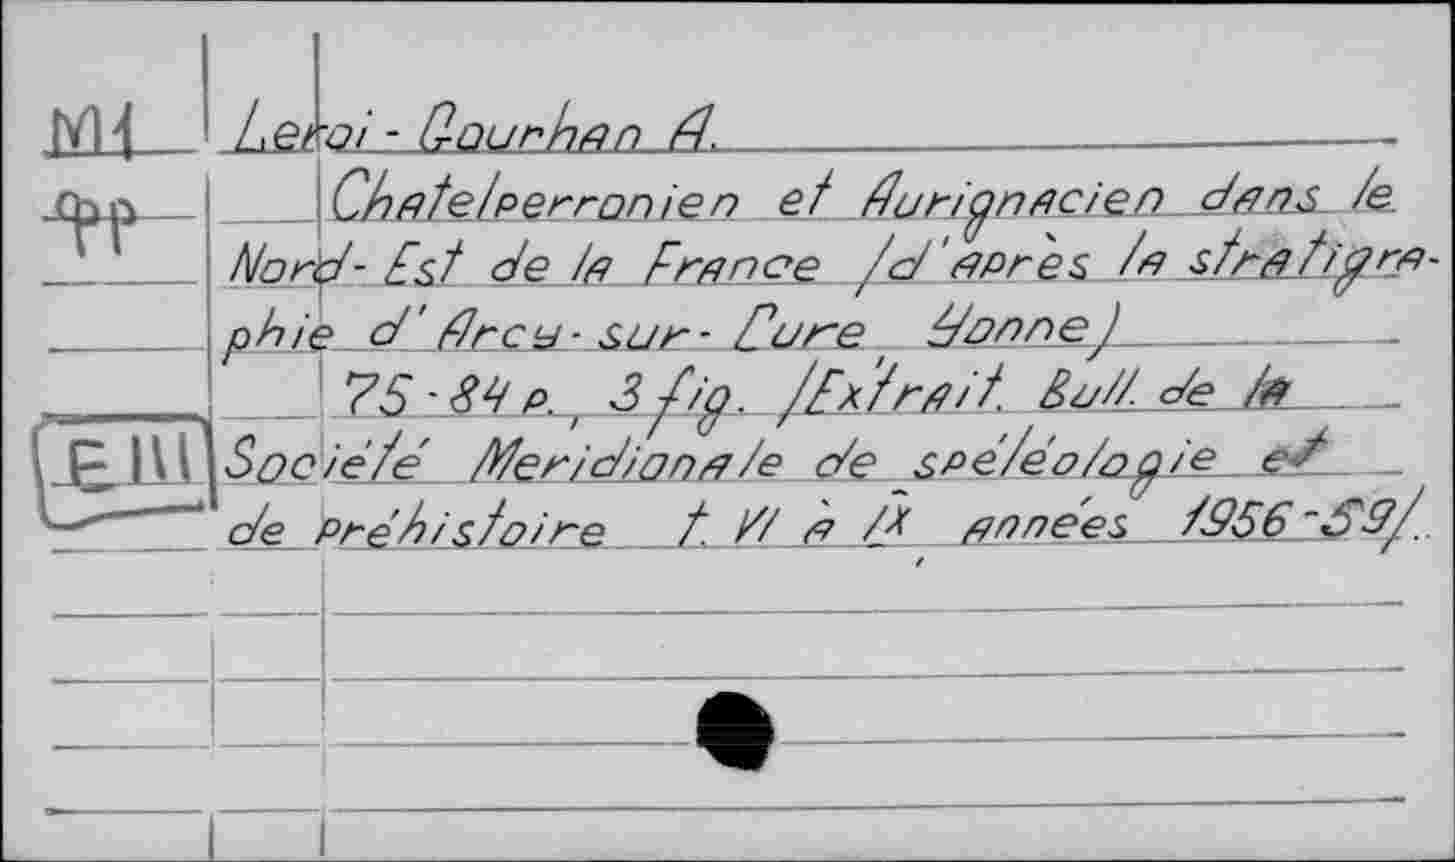 M1 Leroi - Gourhan A.
Chatelperronien et Aurignacien dans le
Nord- Est de la France /d'après la stratigra-
phie d'Arcy-sur-Cure, Yonne)
75-84 p., 3 fig. /Extrait. Bull. de la
E III Société Meridionale de spéléologie et
de préhistoire t. VI à IX, années 1956-59/.